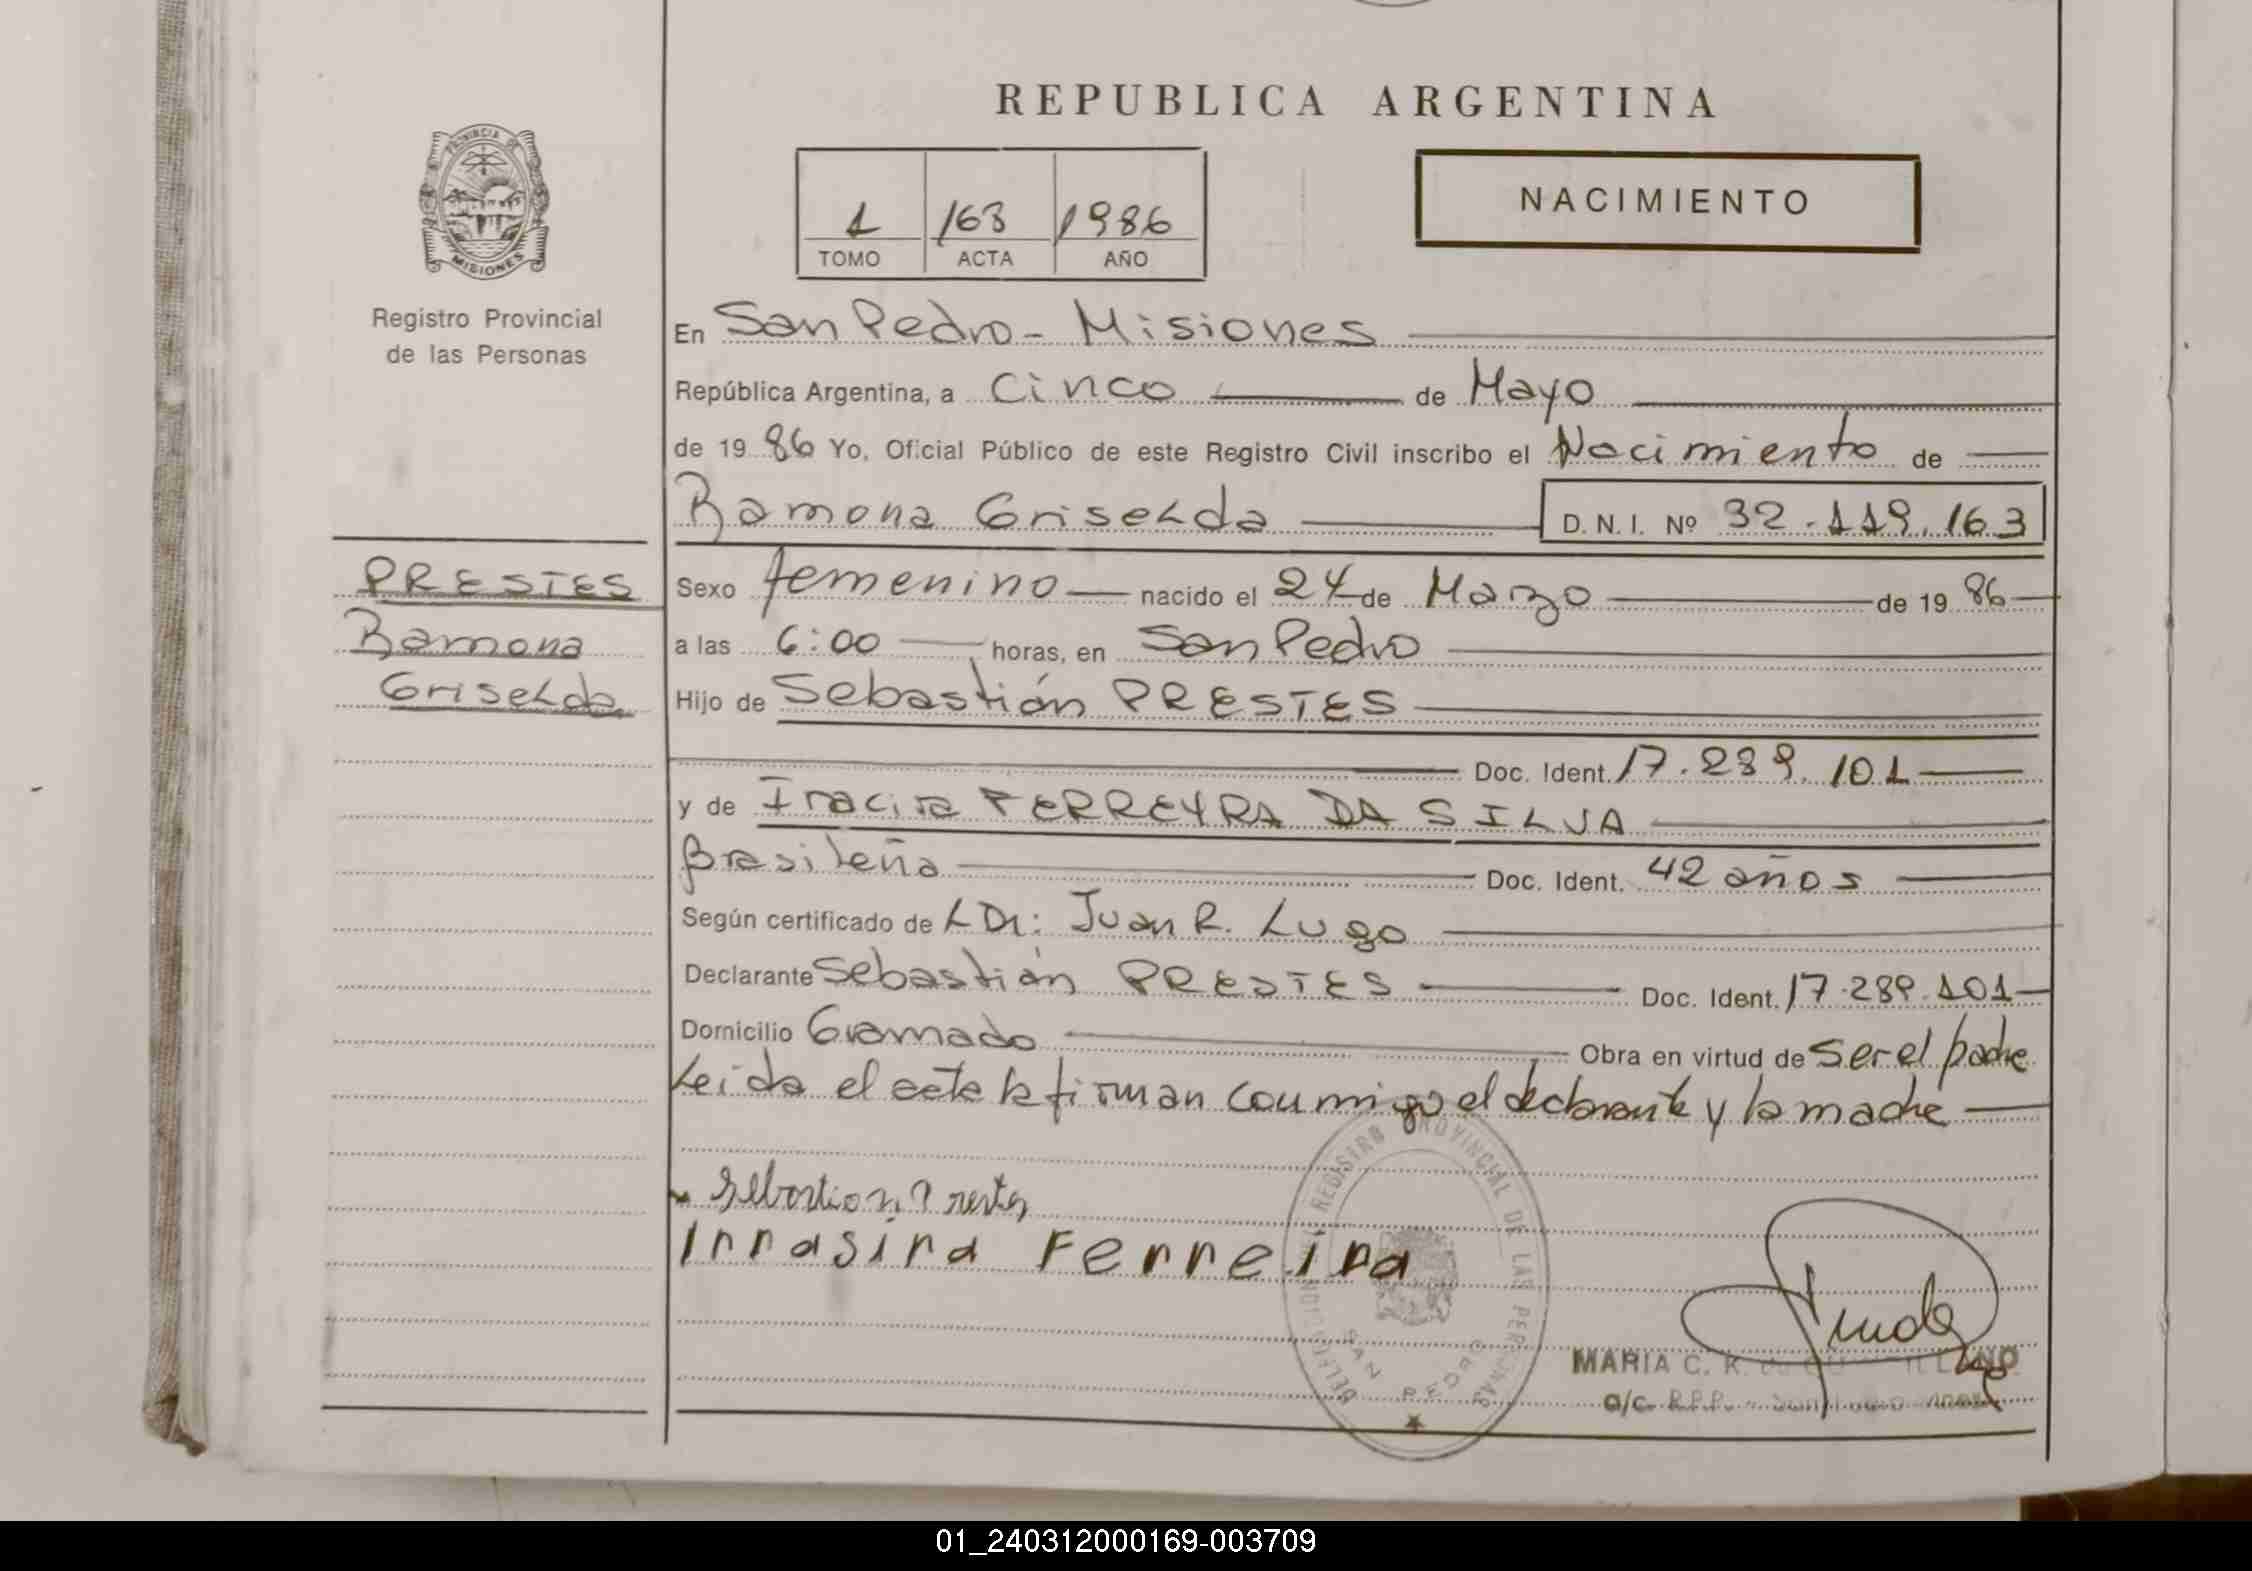 REPUBLICA ARGENTINA
PROVINCIA DE
MISIONES
Registro Provincial
de las Personas
1 163 1986
TOMO ACTA AÑO
NACIMIENTO
En San Pedro - Misiones
República Argentina, a Cinco de Mayo
de 19 86 Yo, Oficial Público de este Registro Civil inscribo el Nacimiento de
Ramona Griselda D. N. I. Nº 32.119.163
PRESTES
Ramona
Griselda
Sexo femenino nacido el 24 de Marzo de 19 86
a las 6:00 horas, en San Pedro
Hijo de Sebastián PRESTES
Doc. Ident. 17.289.101
y de Iracira FERREYRA DA SILVA
Brasileña Doc. Ident. 42 años
Según certificado de L Dr: Juan R. Lugo
Declarante Sebastián PRESTES Doc. Ident. 17.289.101
Domicilio Gramado Obra en virtud de ser el padre
Leida el acta la firman conmigo el declarante y la madre
Sebastian Prestes
Irrasira Ferreira
REGISTRO PROVINCIAL DE LAS PERSONAS
SAN PEDRO
MARIA C. K. de
a/c. R.P.P.
01_240312000169-003709